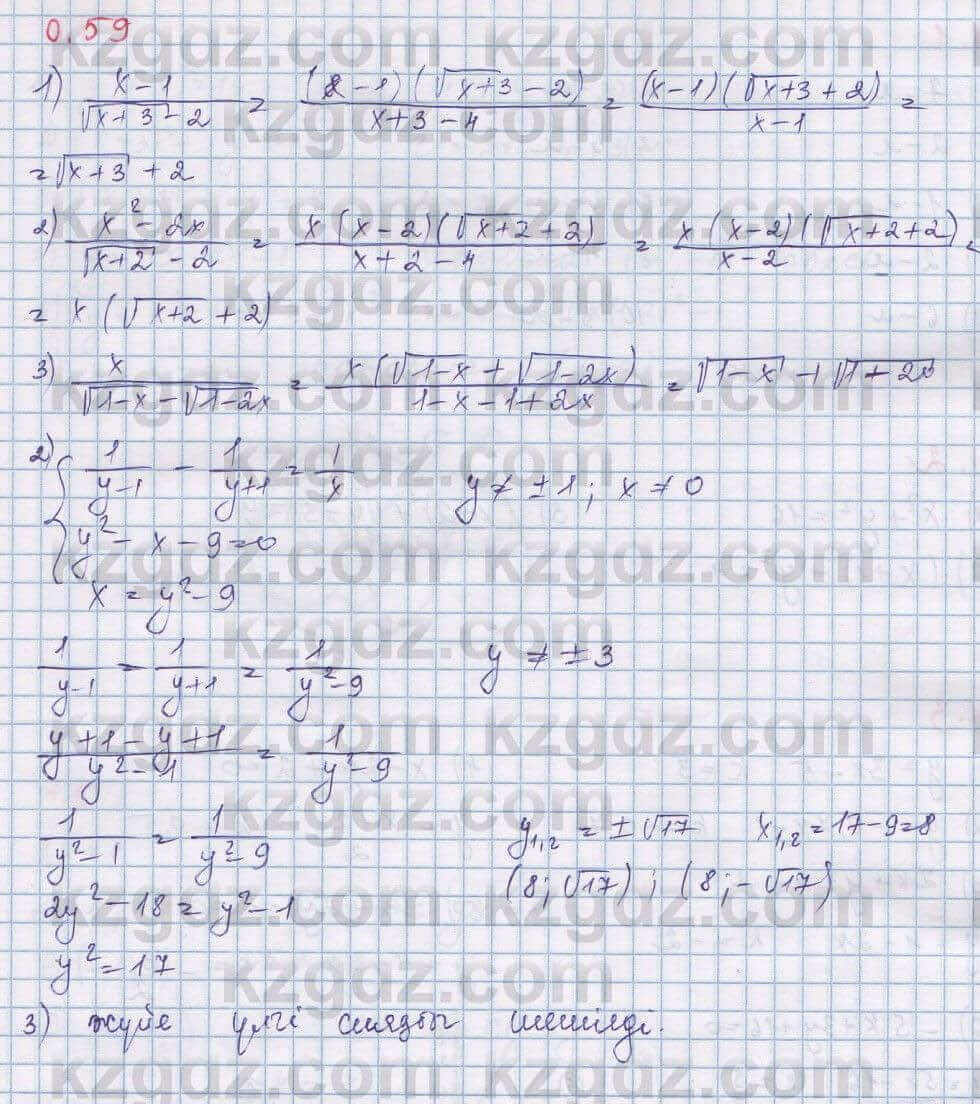 0.59
1) (x-1)/(√(x+3)-2) = ((x-1)(√(x+3)-2))/(x+3-4) = ((x-1)(√(x+3)+2))/(x-1) =
= √(x+3) + 2
2) (x²-2x)/(√(x+2)-2) = (x(x-2)(√(x+2)+2))/(x+2-4) = (x(x-2)(√(x+2)+2))/(x-2) =
= x(√(x+2)+2)
3) x/(√(1-x)-√(1-2x)) = (x(√(1-x)+√(1-2x)))/(1-x-1+2x) = √(1-x)+√(1-2x)
2) { 1/(y-1) - 1/(y+1) = 1/x   y ≠ ±1; x ≠ 0
y²-x-9=0
x = y²-9
1/(y-1) - 1/(y+1) = 1/(y²-9)   y ≠ ±3
(y+1-y+1)/(y²-1) = 1/(y²-9)
1/(y²-1) = 1/(y²-9)   y₁,₂ = ±√17   x₁,₂ = 17-9=8
2y²-18 = y²-1   (8; √17); (8; -√17)
y² = 17
3) жүйе үлгі сияқты шешілді.
kzgdz.com